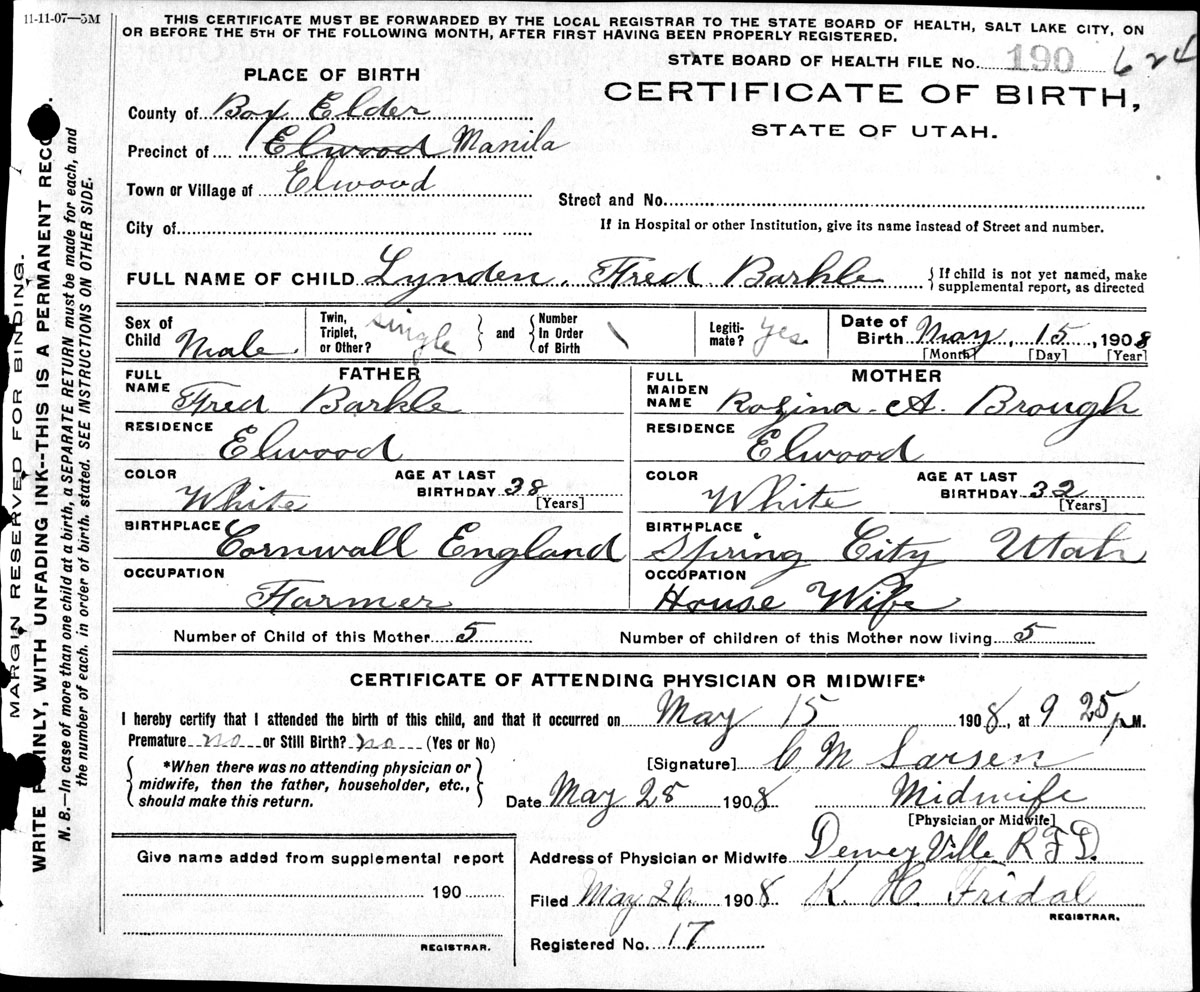 11-11-07—5M
THIS CERTIFICATE MUST BE FORWARDED BY THE LOCAL REGISTRAR TO THE STATE BOARD OF HEALTH, SALT LAKE CITY, ON
OR BEFORE THE 5TH OF THE FOLLOWING MONTH, AFTER FIRST HAVING BEEN PROPERLY REGISTERED.
STATE BOARD OF HEALTH FILE No. 190 624
PLACE OF BIRTH
CERTIFICATE OF BIRTH,
STATE OF UTAH.
County of Box Elder
Precinct of Elwood Manila
Town or Village of Elwood
Street and No.
City of
If in Hospital or other Institution, give its name instead of Street and number.
FULL NAME OF CHILD Lynden Fred Barkle
If child is not yet named, make
supplemental report, as directed
Sex of Child Male
Twin, Triplet, or Other? single
and Number In Order of Birth \
Legiti-mate? yes
Date of Birth May 15, 1908
[Month] [Day] [Year]
FATHER
FULL NAME Fred Barkle
RESIDENCE Elwood
COLOR White
AGE AT LAST BIRTHDAY 38 [Years]
BIRTHPLACE Cornwall England
OCCUPATION Farmer
MOTHER
FULL MAIDEN NAME Rozina A. Brough
RESIDENCE Elwood
COLOR White
AGE AT LAST BIRTHDAY 32 [Years]
BIRTHPLACE Spring City Utah
OCCUPATION House Wife
Number of Child of this Mother 5
Number of children of this Mother now living 5
CERTIFICATE OF ATTENDING PHYSICIAN OR MIDWIFE*
I hereby certify that I attended the birth of this child, and that it occurred on May 15 1908, at 9 25 P.M.
Premature no or Still Birth? no (Yes or No)
*When there was no attending physician or
midwife, then the father, householder, etc.,
should make this return.
[Signature] C M Larsen
Date May 25 1908 Midwife
[Physician or Midwife]
Address of Physician or Midwife Dewey Ville R F D.
Filed May 26 1908 K. H. Fridal
REGISTRAR.
Registered No. 17
Give name added from supplemental report
190
REGISTRAR.
MARGIN RESERVED FOR BINDING.
WRITE PLAINLY, WITH UNFADING INK--THIS IS A PERMANENT RECORD.
N. B.—In case of more than one child at a birth, a SEPARATE RETURN must be made for each, and
the number of each, in order of birth, stated. SEE INSTRUCTIONS ON OTHER SIDE.